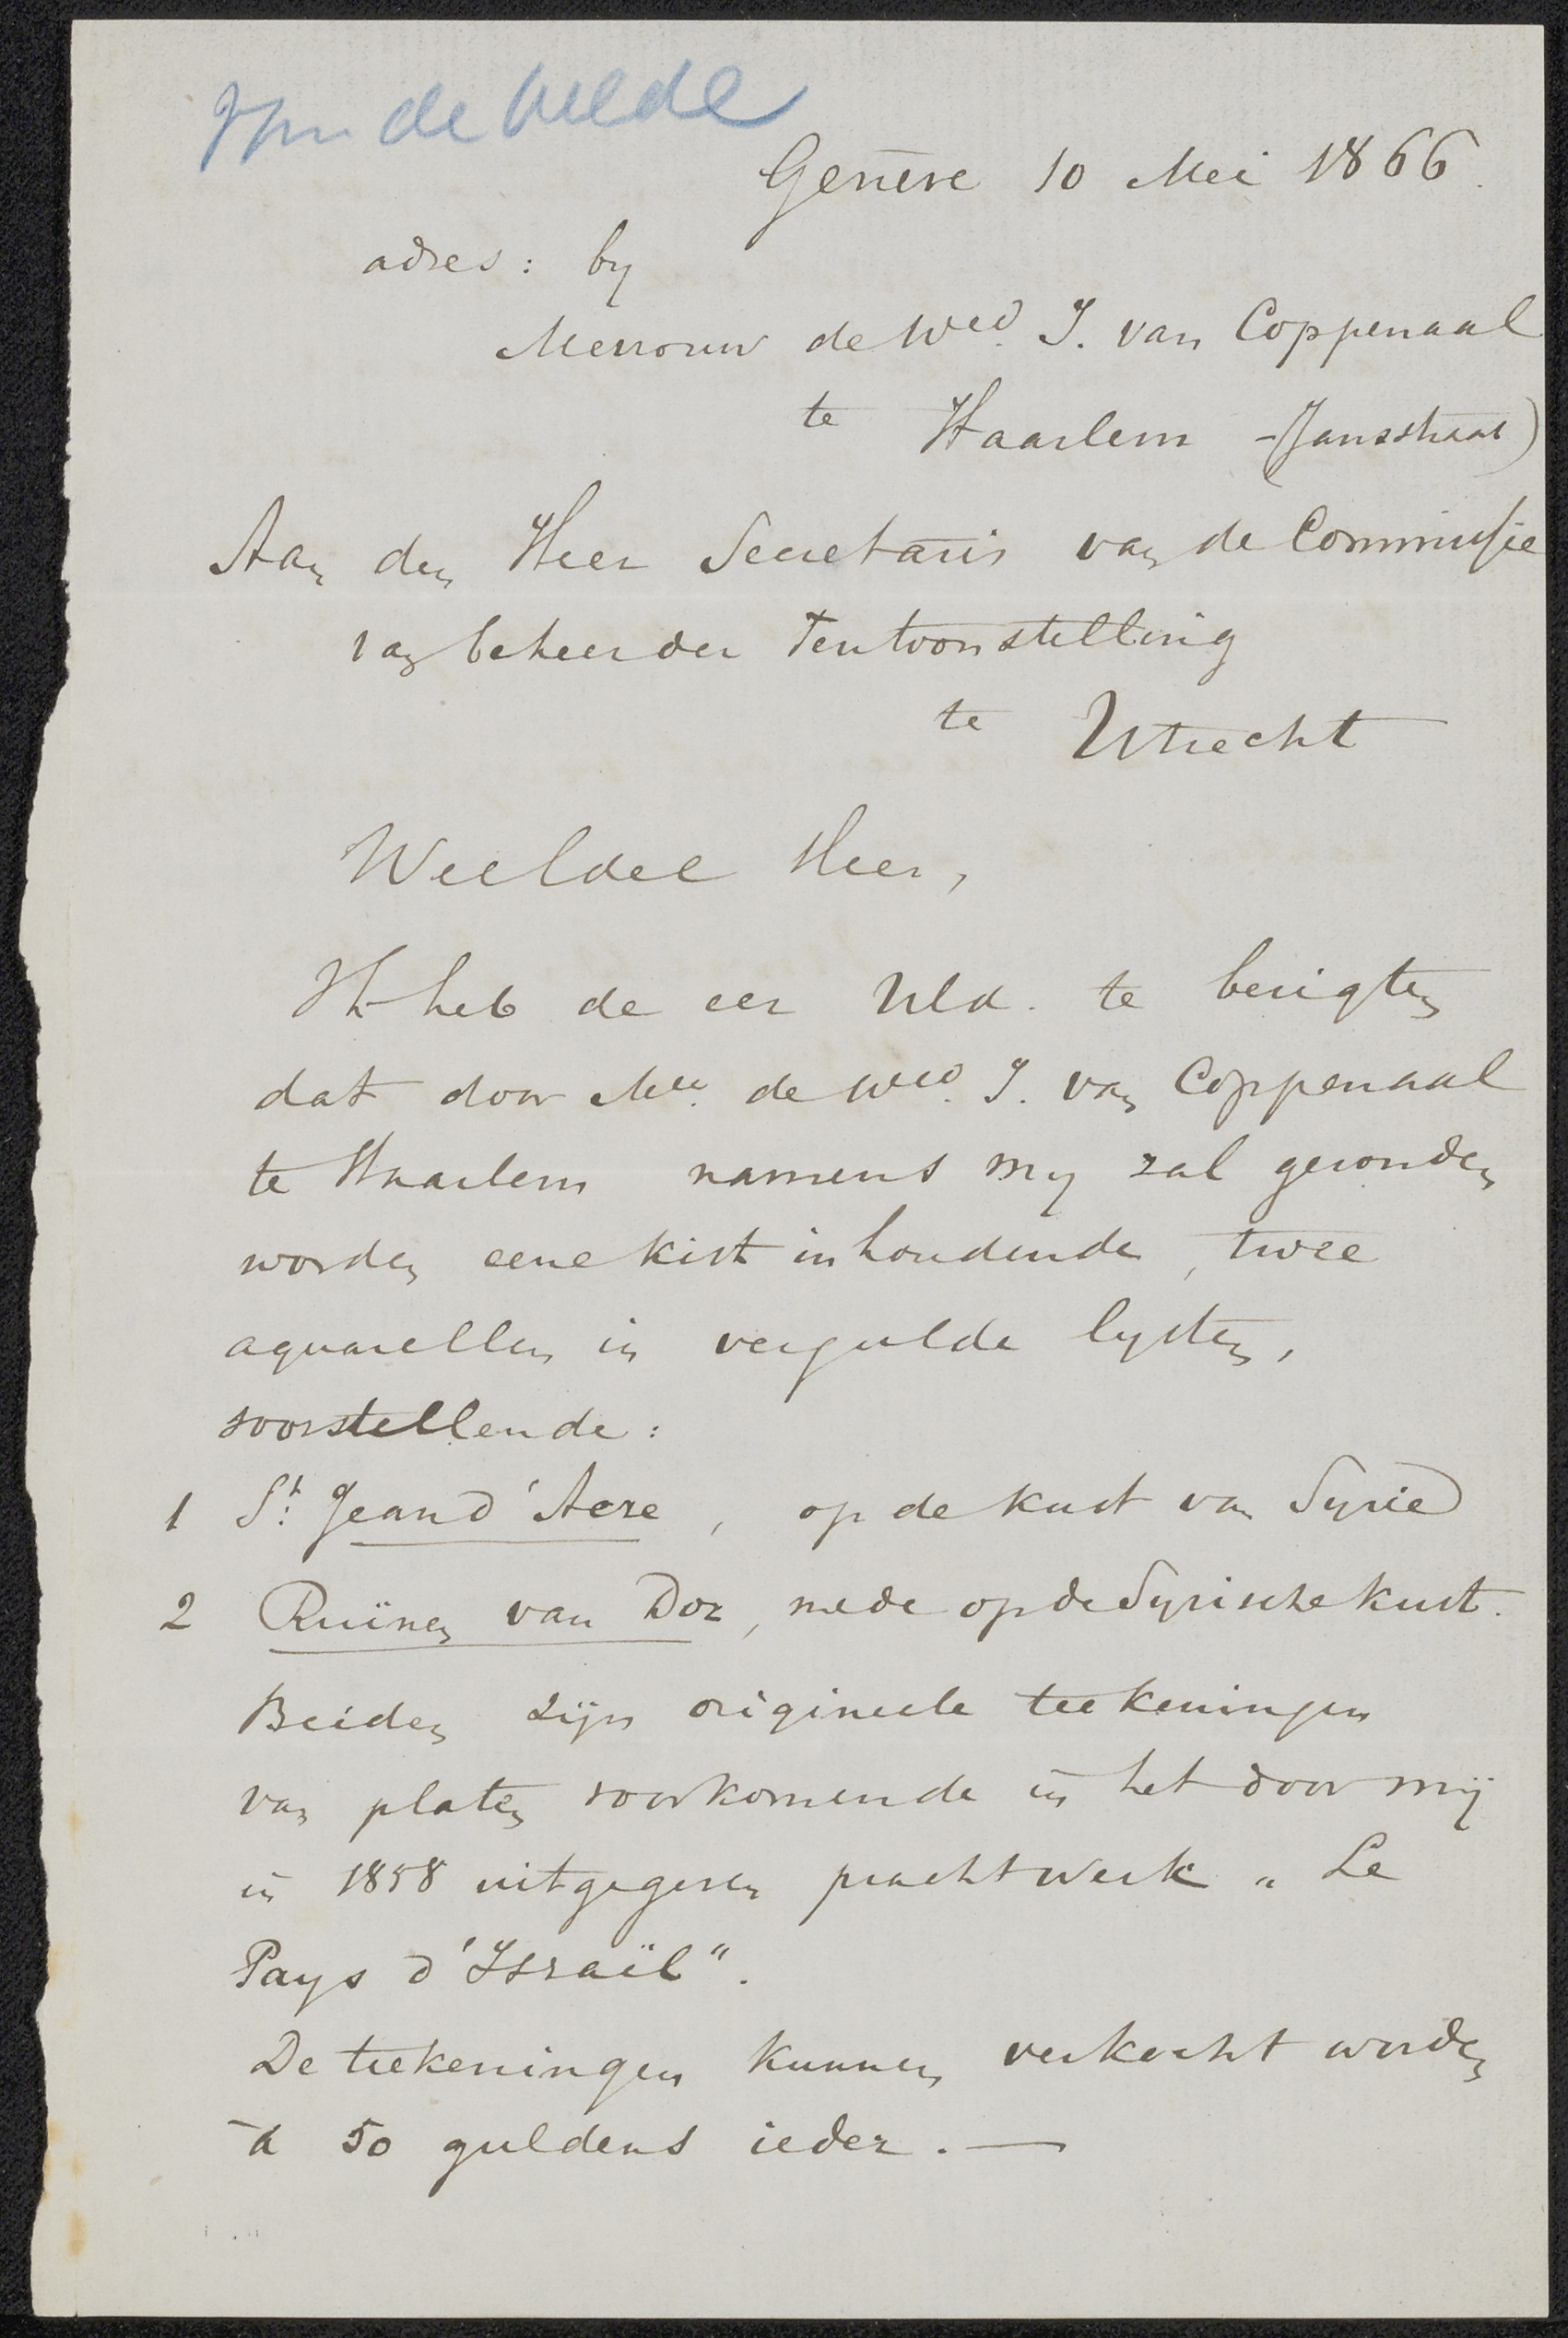 van de Velde
Genève 10 Mei 1866.
adres: by
Mevrouw de Wed. J. van Coppenaal
te Haarlem - (Jansstraat)
Aan den Heer Secretaris van de Commissie
van beheer der Tentoonstelling
te Utrecht
WelEdel Heer,
Ik heb de eer UEd. te berigten
dat door Mw. de Wed. J. van Coppenaal
te Haarlem namens my zal gezonden
worden eene kist inhoudende, twee
aquarellen in vergulde lysten,
voorstellende:
1 St. Jean d'Acre, op de kust van Syrie
2 Ruïnen van Dor, mede op de Syrische kust.
Beiden zijn origineele teekeningen
van platen voorkomende in het door mij
in 1858 uitgegeven prachtwerk „Le
Pays d'Israël".
De teekeningen kunnen verkocht worden
à 50 guldens ieder. —